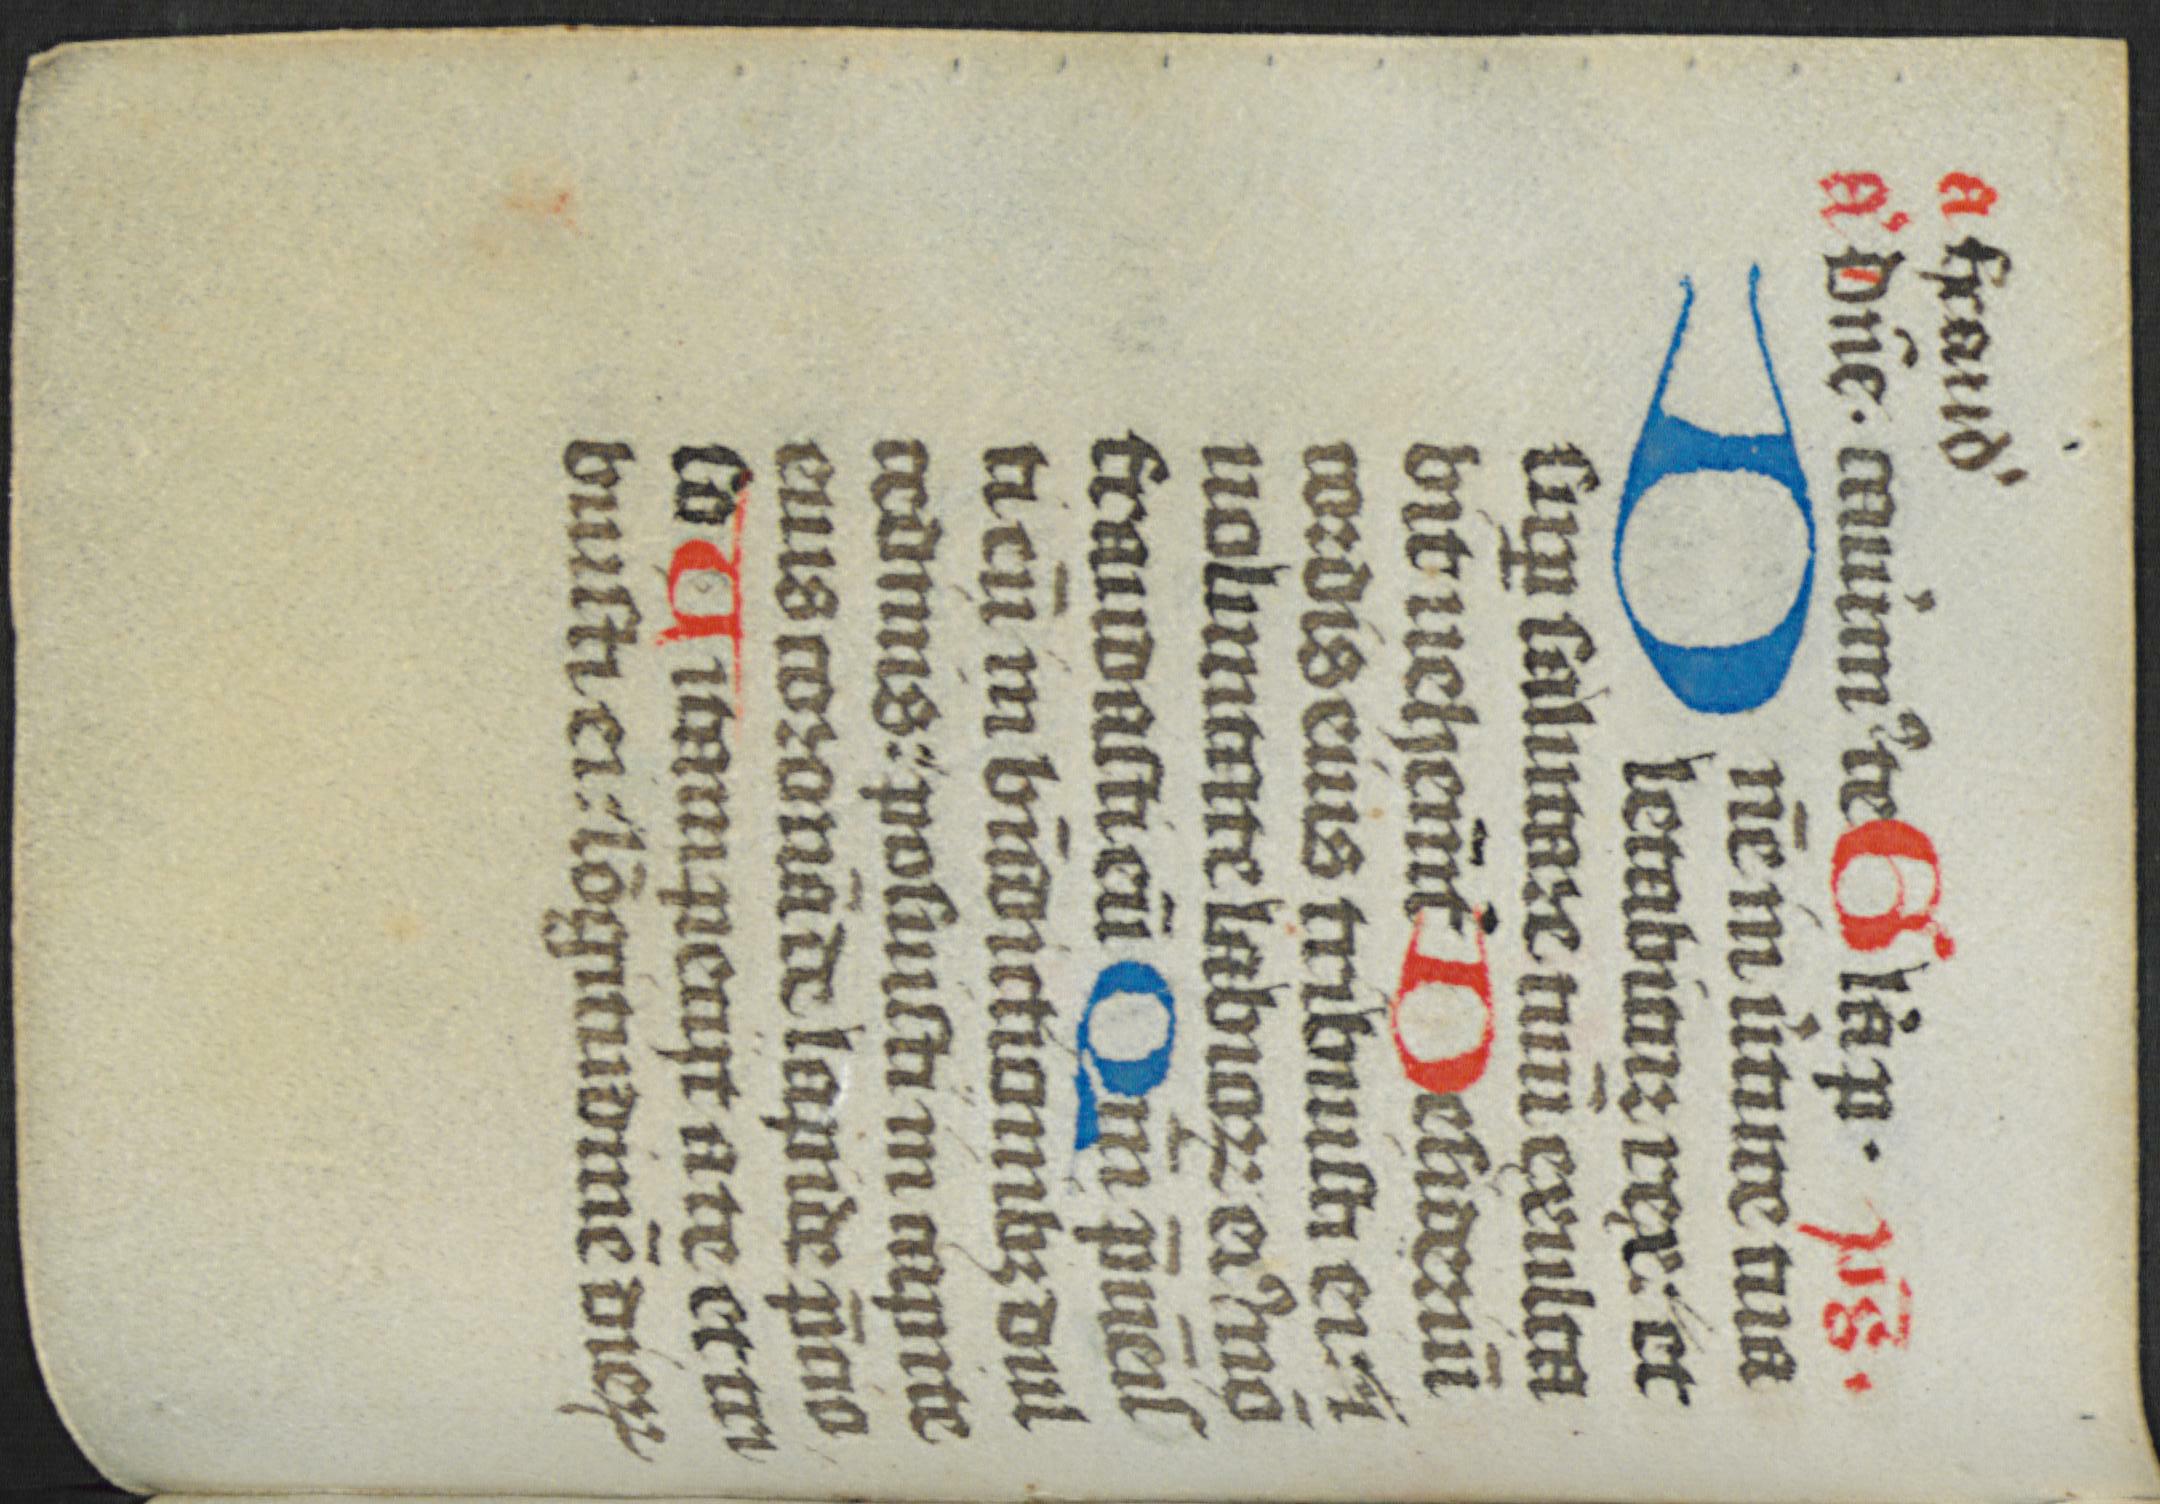 a fraud'
A' Dn̄e. auim̓ te Gl̓ia p. ps̄.
D n̄e in uirtute tua
letabitur rex: et
sup̱ salutare tuū exulta
bit uehem̄t̓ Desideriū
cordis eius tribuisti ei: ⁊
uoluntate labioꝝ ei᷒ nō
fraudasti eū Qm̄ p̄uēis
ti eū in bn̄dictionibꝫ dul
cedinis: posuisti in capite
eius coronā de lapide p̄cio
so Uitam petiit a te et tri
buisti ei: lōgitudinē dieꝝ